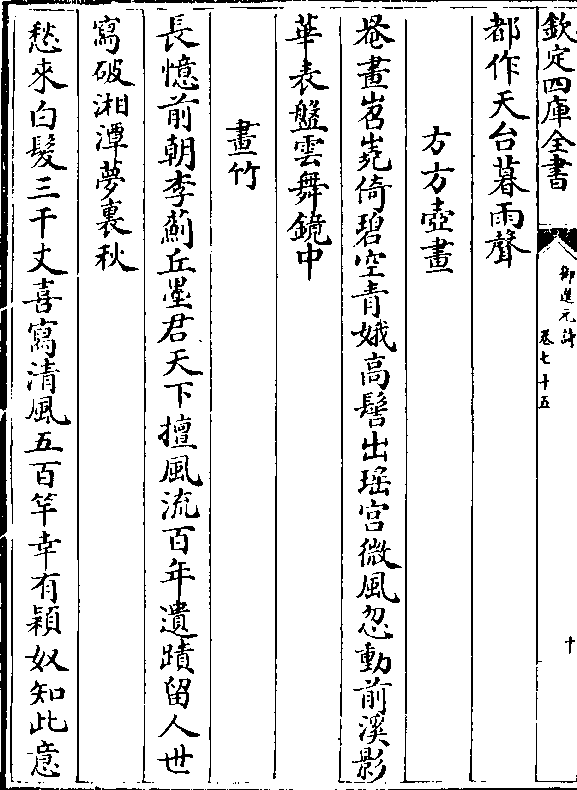 欽定四庫全書
御選元詩
卷七十五
十
都作天台暮雨聲
方方壺畫
菴畫岧嶤倚碧空青娥高髻出瑤宫微風忽動前溪影
華表盤雲舞鏡中
畫竹
長憶前朝李薊丘墨君天下擅風流百年遺蹟留人世
寫破湘潭夢裏秋
愁來白髮三千丈喜寫清風五百竿幸有穎奴知此意